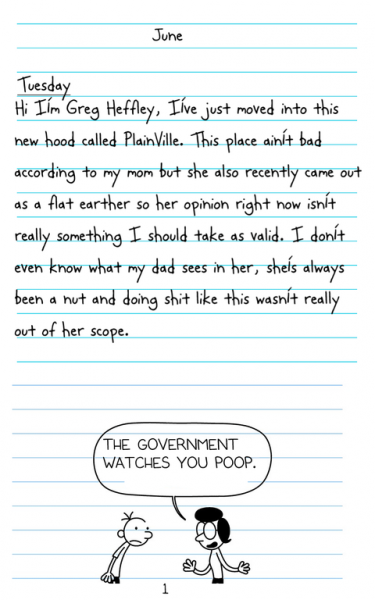 June
Tuesday
Hi Iím Greg Heffley, Iíve just moved into this
new hood called PlainVille. This place ainít bad
according to my mom but she also recently came out
as a flat earther so her opinion right now isnít
really something I should take as valid. I donít
even know what my dad sees in her, sheís always
been a nut and doing shit like this wasnít really
out of her scope.
THE GOVERNMENT
WATCHES YOU POOP.
1